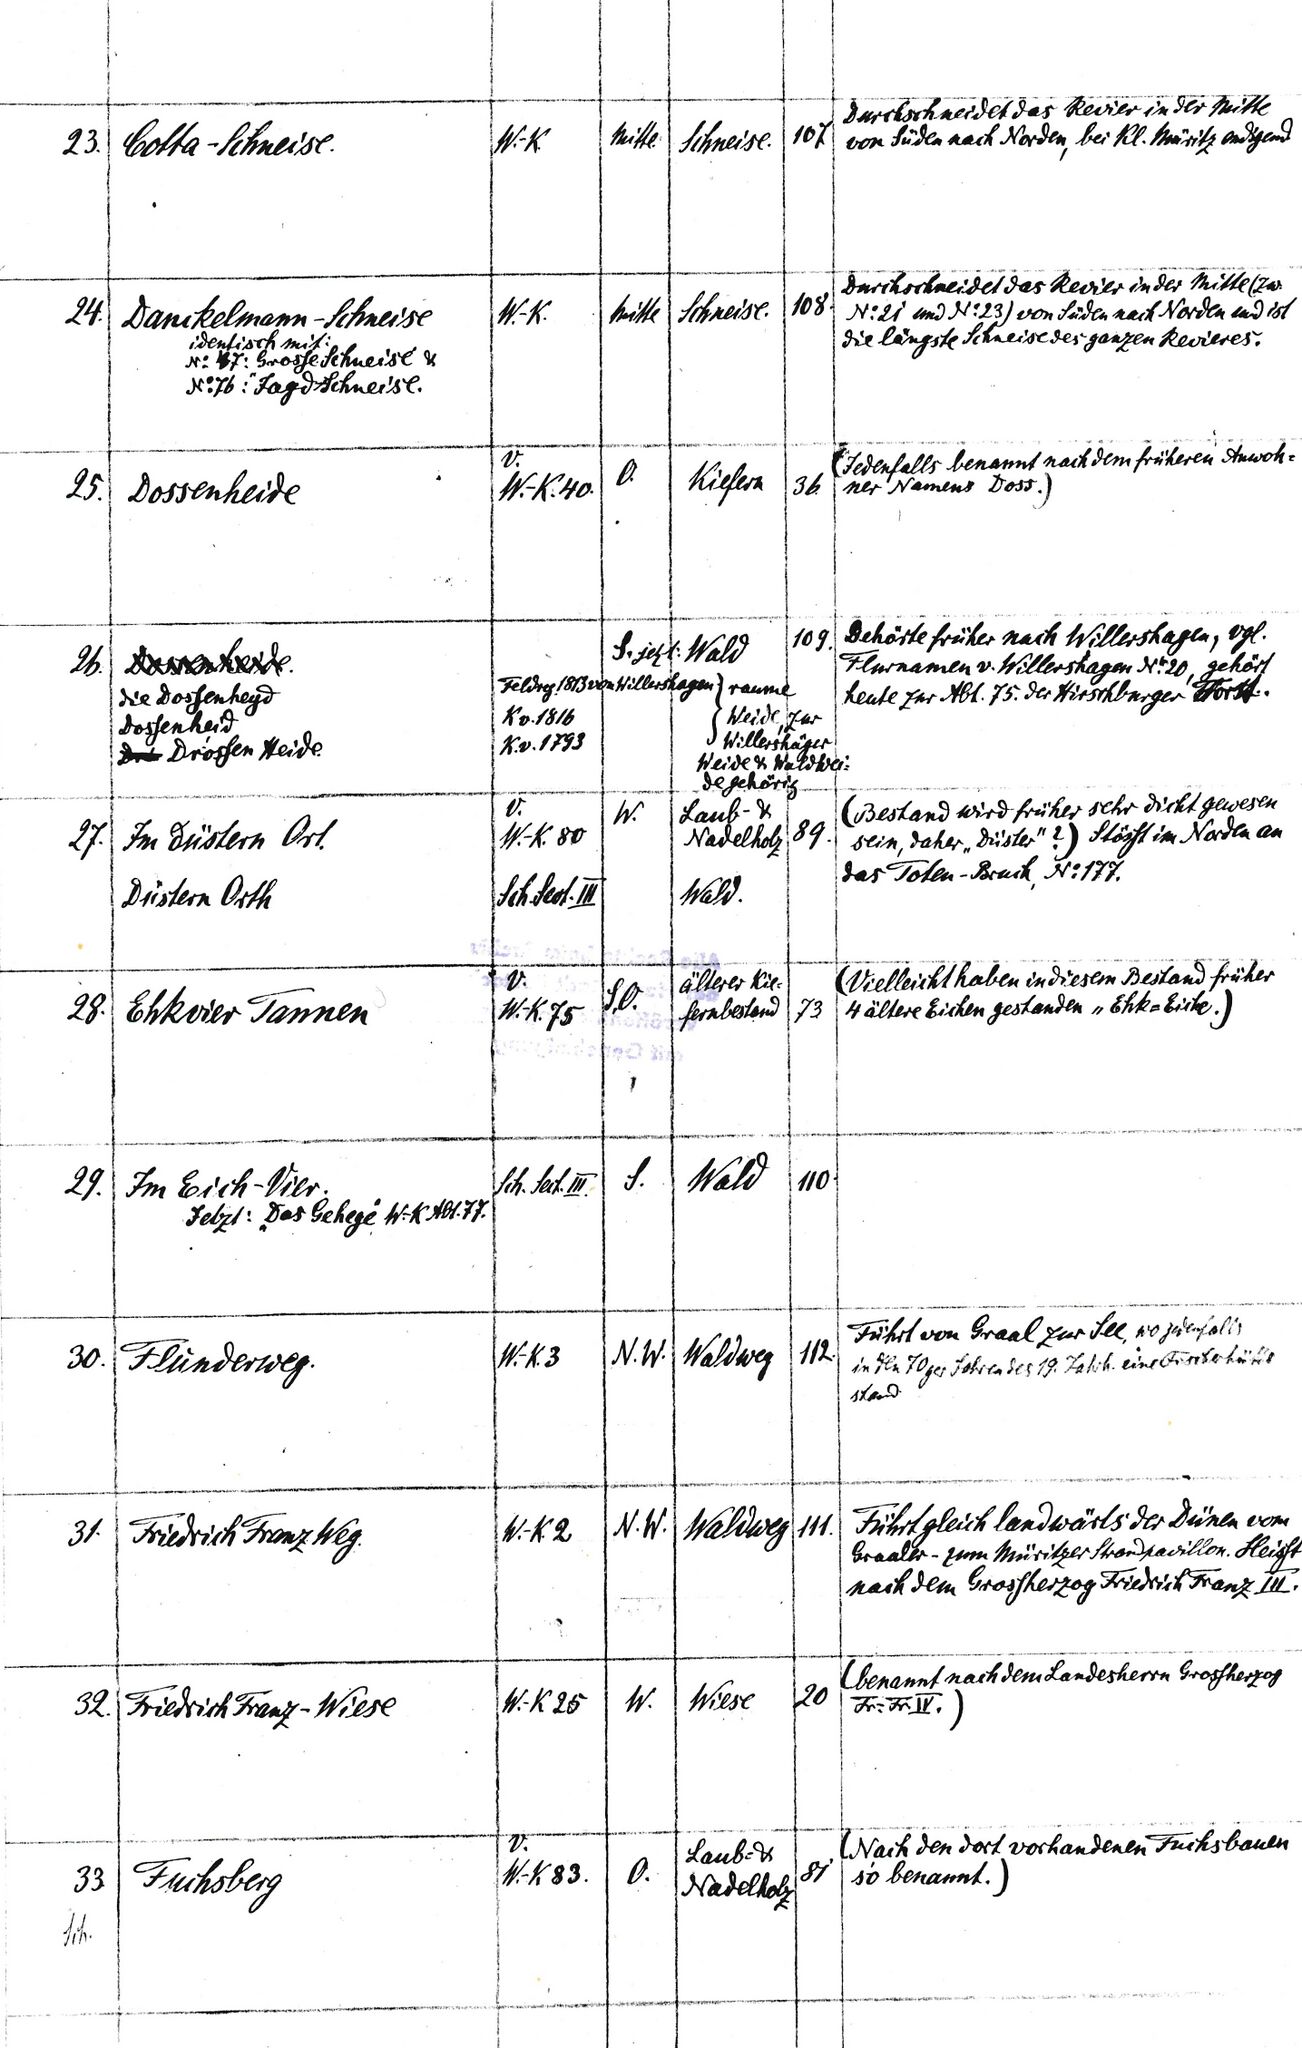 Durchschneidet das Revier in der Mitte
23. Cotta-Schneise. W.-K. Mitte Schneise. 107. von Süden nach Norden, bei Kl. Müritz endigend
Durchschneidet das Revier in der Mitte (zw.
24. Danckelmann-Schneise W.-K. Mitte Schneise. 108. No. 21 und No. 23) von Süden nach Norden und ist
identisch mit: die längste Schneise des ganzen Revieres.
No. 47: Grosse Schneise &
No. 76: "Jagdschneise.
V. (Jedenfalls benannt nach dem früheren Anwoh=
25. Dossenheide W.-K. 40. O. Kiefern 36. ner Namens Doss.)
26. Dossenheide. S. jetzt: Wald 109. Gehörte früher nach Willershagen, vgl.
die Dossenheyd Feldreg. 1813 von Willershagen } raume Flurnamen v. Willershagen No. 20, gehört
Dossenheid K v. 1816 Weide, zur heute zur Abt. 75. der Hirschburger Forst.
Drossen Heide. K. v. 1793 Willershäger
Weide & Waldwei-
de gehörig
V. W. Laub- & (Bestand wird früher sehr dicht gewesen
27. Im düstern Ort. W.-K. 80 Nadelholz 89. sein, daher „Düster"?) Stösst im Norden an
das Toten-Bruch, No. 177.
Düstern Orth Sch. Sect. III Wald.
V. älterer Kie- (Vielleicht haben in diesem Bestand früher
28. Ehkvier Tannen W.-K. 75 S.O. fernbestand 73 4 ältere Eichen gestanden „Ehk=Eiche.)
29. Im Eich-Vier. Sch. Sect. III. S. Wald 110
Jetzt: „Das Gehege" W.-K Abt. 77.
Führt von Graal zur See, wo jedenfalls
30. Flunderweg. W.-K. 3 N.W. Waldweg 112. in den 70ger Jahren des 19. Jahrh. eine Fischerhütte
stand
31. Friedrich Franz Weg. W.-K 2 N.W. Waldweg 111. Führt gleich landwärts der Dünen vom
Graaler- zum Müritzer Strandpavillon. Heisst
nach dem Grossherzog Friedrich Franz III.
(benannt nach dem Landesherrn Grossherzog
32. Friedrich Franz-Wiese W.-K 25 W. Wiese 20 Fr.-Fr. IV.)
V. Laub- & (Nach den dort vorhandenen Fuchsbauen
33 Fuchsberg W.-K 83. O. Nadelholz 81 so benannt.)
Sch.